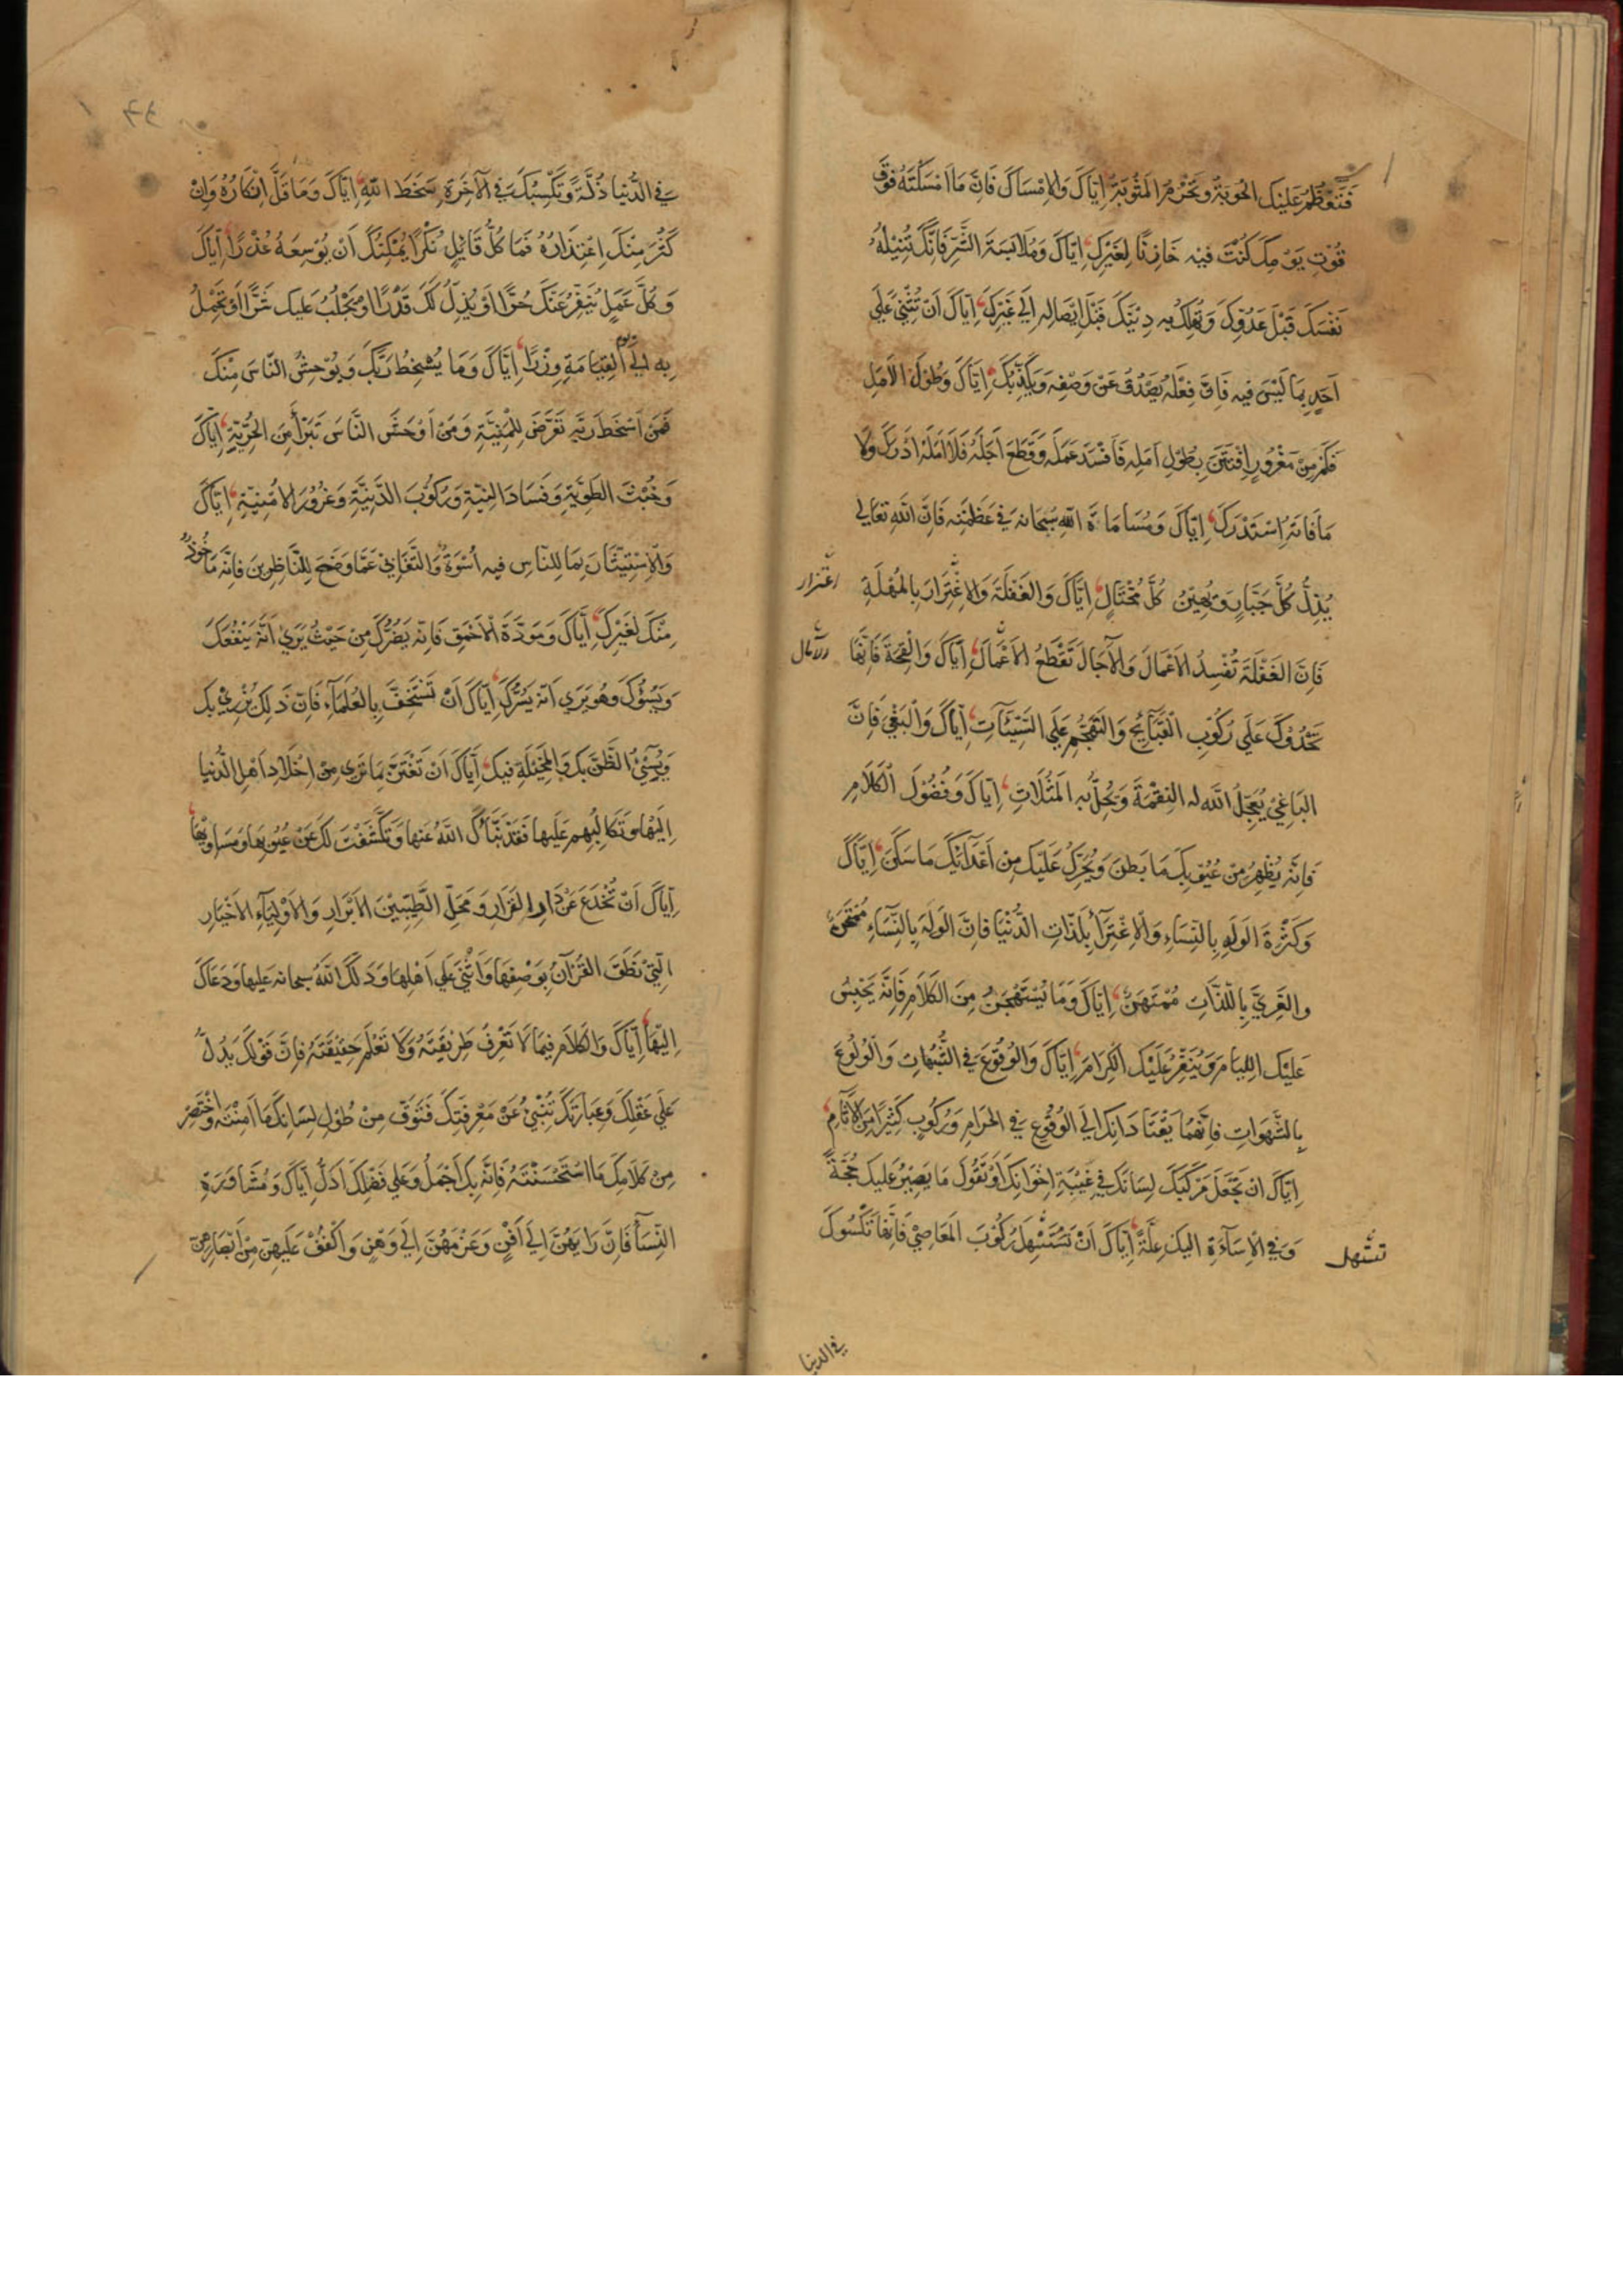 فَتَعْظُمُ عَلَيْكَ الْحَوْبَةُ وَتُحْرَمُ الْمَثُوبَةَ إِيَّاكَ وَالْإِمْسَاكَ فَإِنَّ مَا أَمْسَكْتَهُ فَوْقَ
قُوتِ يَوْمِكَ كُنْتَ فِيهِ خَازِنًا لِغَيْرِكَ إِيَّاكَ وَمُلَابَسَةَ الشَّرِّ فَإِنَّكَ تُنِيلُهُ
نَفْسَكَ قَبْلَ عَدُوِّكَ وَتُهْلِكُ بِهِ دِينَكَ قَبْلَ إِيصَالِهِ إِلَى غَيْرِكَ إِيَّاكَ أَنْ تُثْنِيَ عَلَى
أَحَدٍ بِمَا لَيْسَ فِيهِ فَإِنَّ فِعْلَهُ يَصْدُقُ عَنْ وَصْفِهِ وَيُكَذِّبُكَ إِيَّاكَ وَطُولَ الْأَمَلِ
فَكَمْ مِنْ مَغْرُورٍ افْتَتَنَ بِطُولِ أَمَلِهِ فَأَفْسَدَ عَمَلَهُ وَقَطَعَ أَجَلَهُ فَلَا أَمَلَهُ أَدْرَكَ وَلَا
مَا فَاتَهُ اسْتَدْرَكَ إِيَّاكَ وَمُسَامَاةَ اللهِ سُبْحَانَهُ فِي عَظَمَتِهِ فَإِنَّ اللهَ تَعَالَى
يُذِلُّ كُلَّ جَبَّارٍ وَيُهِينُ كُلَّ مُخْتَالٍ إِيَّاكَ وَالْغَفْلَةَ وَالِاغْتِرَارَ بِالْمُهْلَةِ
اغترار
فَإِنَّ الْغَفْلَةَ تُفْسِدُ الْأَعْمَالَ وَالْآجَالَ تَقْطَعُ الْأَعْمَالَ إِيَّاكَ وَالْقِحَةَ فَإِنَّهَا
الآمال
تَحْدُوكَ عَلَى رُكُوبِ الْقَبَائِحِ وَالتَّهَجُّمِ عَلَى السَّيِّئَاتِ إِيَّاكَ وَالْبَغْيَ فَإِنَّ
الْبَاغِيَ يُعَجِّلُ اللهُ لَهُ النِّقْمَةَ وَيُحِلُّ بِهِ الْمَثُلَاتِ إِيَّاكَ وَفُضُولَ الْكَلَامِ
فَإِنَّهُ يُظْهِرُ مِنْ عُيُوبِكَ مَا بَطَنَ وَيُحَرِّكُ عَلَيْكَ مِنْ أَعْدَائِكَ مَا سَكَنَ إِيَّاكَ
وَكَثْرَةَ الْوَلَهِ بِالنِّسَاءِ وَالْإِغْتِرَاءِ بِلَذَّاتِ الدُّنْيَا فَإِنَّ الْوَلِهَ بِالنِّسَاءِ مُمْتَحَنٌ
وَالْغَرِيَّ بِاللَّذَّاتِ مُمْتَهَنٌ إِيَّاكَ وَمَا يُسْتَهْجَنُ مِنَ الْكَلَامِ فَإِنَّهُ يَحْبِسُ
عَلَيْكَ اللِّئَامَ وَيُنَفِّرُ عَلَيْكَ الْكِرَامَ إِيَّاكَ وَالْوُقُوعَ فِي الشُّبُهَاتِ وَالْوُلُوعَ
بِالشَّهَوَاتِ فَإِنَّهُمَا يَقْتَادَانِكَ إِلَى الْوُقُوعِ فِي الْحَرَامِ وَرُكُوبِ كَثِيرًا مِنَ الْآثَامِ
إِيَّاكَ أَنْ تَجْعَلَ مَرْكَبَكَ لِسَانَكَ فِي غِيبَةِ إِخْوَانِكَ أَوْ تَقُولَ مَا يَصِيرُ عَلَيْكَ حُجَّةً
وَفِي الْإِسَاءَةِ إِلَيْكَ عِلَّةً إِيَّاكَ أَنْ تَسْتَسْهِلَ رُكُوبَ الْمَعَاصِي فَإِنَّهَا تَكْسُوكَ
تستهل
في الدنيا
فِي الدُّنْيَا ذِلَّةً وَتَكْسِبُكَ فِي الْآخِرَةِ سَخَطَ اللهِ إِيَّاكَ وَمَا قَلَّ إِنْكَارُهُ وَإِنْ
كَثُرَ مِنْكَ اعْتِذَارُهُ فَمَا كُلُّ قَائِلٍ نُكْرًا يُمْكِنُكَ أَنْ يُوسِعَهُ عُذْرًا إِيَّاكَ
وَكُلَّ عَمَلٍ يُنَفِّرُ عَنْكَ حُرًّا أَوْ يُذِلُّ لَكَ قَدْرًا أَوْ يَجْلُبُ عَلَيْكَ شَرًّا أَوْ تَحْمِلُ
بِهِ إِلَى يوم الْقِيَامَةِ وِزْرًا إِيَّاكَ وَمَا يُسْخِطُ رَبَّكَ وَيُوحِشُ النَّاسَ مِنْكَ
فَمَنْ أَسْخَطَ رَبَّهُ تَعَرَّضَ لِلْمَنِيَّةِ وَمَنْ أَوْحَشَ النَّاسَ تَبَرَّأَ مِنَ الْحُرِّيَّةِ إِيَّاكَ
وَخُبْثَ الطَّوِيَّةِ وَفَسَادَ النِّيَّةِ وَرُكُوبَ الدَّنِيَّةِ وَغُرُورَ الْأُمْنِيَّةِ إِيَّاكَ
وَالْإِسْتِيثَارَ بِمَا لِلنَّاسِ فِيهِ أُسْوَةٌ وَالتَّغَابِيَ عَمَّا وَضَحَ لِلنَّاظِرِينَ فَإِنَّهُ مَأْخُوذٌ
مِنْكَ لِغَيْرِكَ إِيَّاكَ وَمَوَدَّةَ الْأَحْمَقِ فَإِنَّهُ يَضُرُّكَ مِنْ حَيْثُ يَرَى أَنَّهُ يَنْفَعُكَ
وَيَسُوءُكَ وَهُوَ يَرَى أَنَّهُ يَسُرُّكَ إِيَّاكَ أَنْ تَسْتَخِفَّ بِالْعُلَمَاءِ فَإِنَّ ذَلِكَ يُزْرِي بِكَ
وَيُسِيءُ الظَّنَّ بِكَ وَالْمَخِيلَةَ فِيكَ إِيَّاكَ أَنْ تَغْتَرَّ بِمَا تَرَى مِنْ إِخْلَادِ أَهْلِ الدُّنْيَا
إِلَيْهَا وَتَكَالُبِهِمْ عَلَيْهَا فَقَدْ نَبَّأَكَ اللهُ عَنْهَا وَتَكَشَّفَتْ لَكَ عَنْ عُيُوبِهَا وَمَسَاوِيهَا
إِيَّاكَ أَنْ تُخْدَعَ عَنْ دَارِ الْقَرَارِ وَمَحَلِّ الطَّيِّبِينَ الْأَبْرَارِ وَالْأَوْلِيَاءِ الْأَخْيَارِ
الَّتِي نَطَقَ الْقُرْآنُ بِوَصْفِهَا وَأَثْنَى عَلَى أَهْلِهَا وَدَلَّكَ اللهُ سبحانه عَلَيْهَا وَدَعَاكَ
إِلَيْهَا إِيَّاكَ وَالْكَلَامَ فِيمَا لَا تَعْرِفُ طَرِيقَتَهُ وَلَا تَعْلَمُ حَقِيقَتَهُ فَإِنَّ قَوْلَكَ يَدُلُّ
عَلَى عَقْلِكَ وَعِبَارَتَكَ تُنْبِئُ عَنْ مَعْرِفَتِكَ فَتَوَقَّ مِنْ طُولِ لِسَانِكَ مَا أَمِنْتَهُ وَاخْتَصِرْ
مِنْ كَلَامِكَ مَا اسْتَحْسَنْتَهُ فَإِنَّهُ بِكَ أَجْمَلُ وَعَلَى فَضْلِكَ أَدَلُّ إِيَّاكَ وَمُشَاوَرَةَ
النِّسَاءِ فَإِنَّ رَأْيَهُنَّ إِلَى أَفْنٍ وَعَزْمَهُنَّ إِلَى وَهْنٍ وَاكْفُفْ عَلَيْهِنَّ مِنْ أَبْصَارِهِنَّ